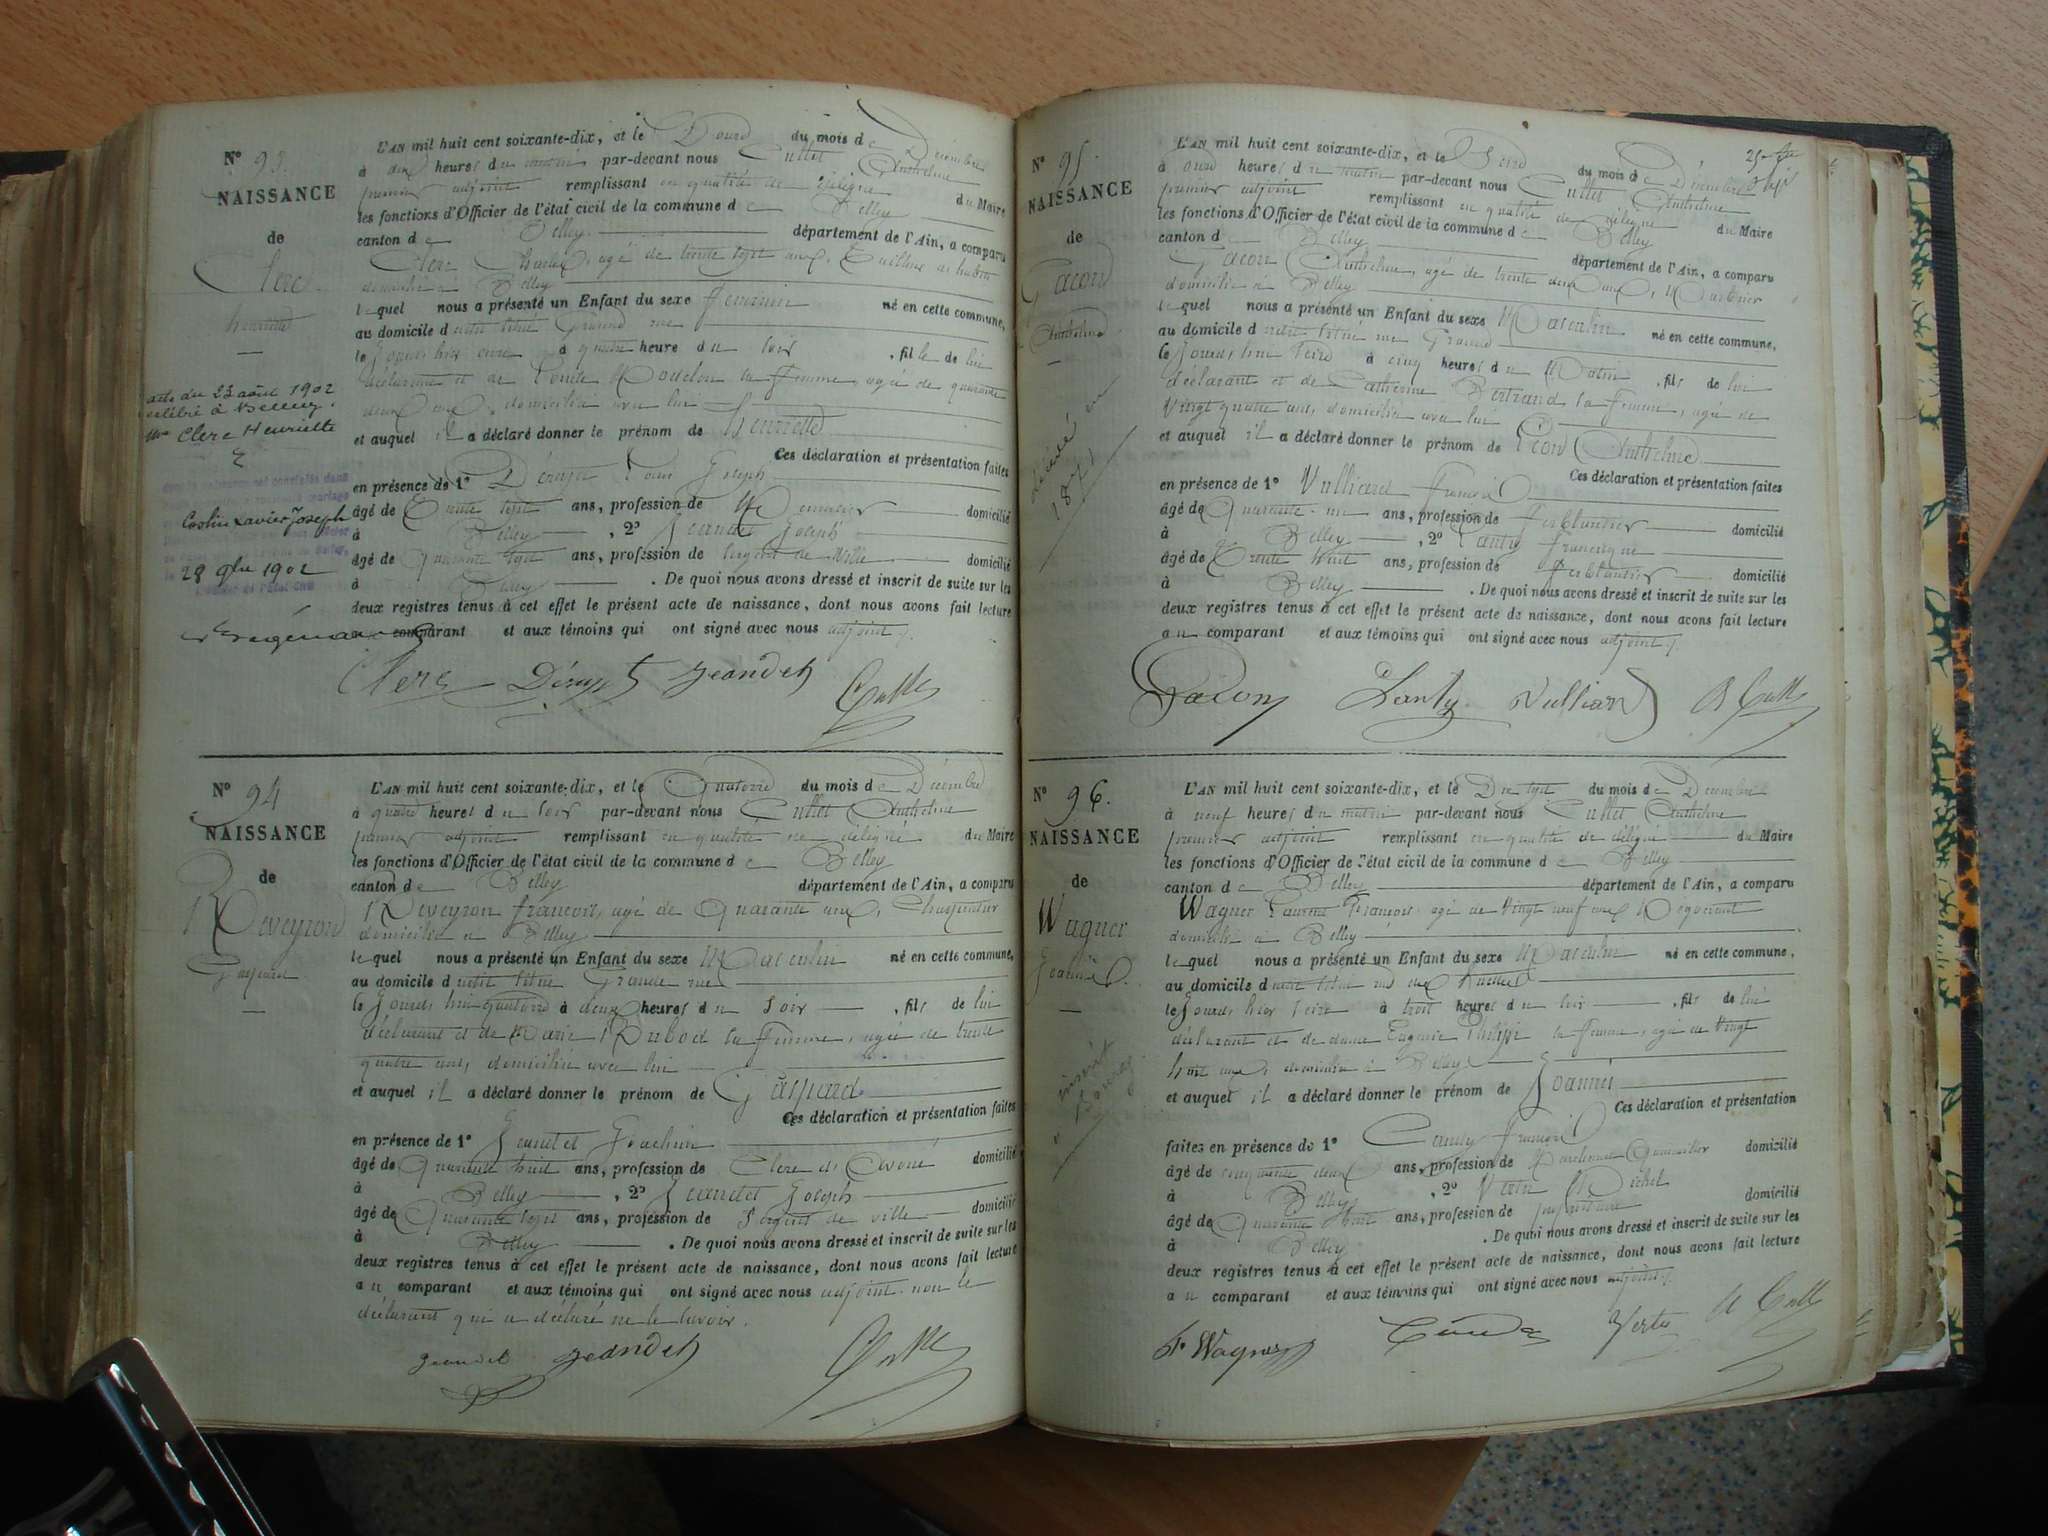 N° 93
NAISSANCE
de
Clerc
henriette
acte du 23 août 1902
célébré à Belley
Mme Clerc Henriette
Costin Xavier Joseph
28 9bre 1902
L'AN mil huit cent soixante-dix, et le Douze du mois de Décembre
à dix heures du matin par-devant nous Cullet Anthelme
premier adjoint remplissant en qualité de délégué du Maire
les fonctions d'Officier de l'état civil de la commune de Belley
canton de Belley département de l'Ain, a comparu
Clerc Charles, agé de trente sept ans, Tailleur d'habits
domicilié à Belley
lequel nous a présenté un Enfant du sexe féminin né en cette commune,
au domicile dudit titré Grande rue
le jour d'hier onze à quatre heure du soir , fille de lui
déclarant et de Louise sa femme, agée de quarante
deux ans, domiciliée avec lui
et auquel il a déclaré donner le prénom de Henriette
Ces déclaration et présentation faites
en présence de 1° Joseph
âgé de Trente sept ans, profession de Menuisier domicilié
à Belley , 2° Jeandet Joseph
âgé de Quarante sept ans, profession de Sergent de Ville domicilié
à Belley . De quoi nous avons dressé et inscrit de suite sur les
deux registres tenus à cet effet le présent acte de naissance, dont nous avons fait lecture
au comparant et aux témoins qui ont signé avec nous adjoint ./.
Clerc Jeandet Cullet
N° 94
NAISSANCE
de
Reveyron
Gaspard
L'AN mil huit cent soixante-dix, et le Quatorze du mois de Décembre
à quatre heures du soir par-devant nous Cullet Anthelme
premier adjoint remplissant en qualité de délégué du Maire
les fonctions d'Officier de l'état civil de la commune de Belley
canton de Belley département de l'Ain, a comparu
Reveyron françois, agé de Quarante ans, Charpentier
domicilié à Belley
lequel nous a présenté un Enfant du sexe Masculin né en cette commune,
au domicile dudit titré Grande rue
le Jourd'hui quatorze à deux heures du soir , fils de lui
déclarant et de Marie Rubod sa femme, agée de trente
quatre ans, domiciliée avec lui
et auquel il a déclaré donner le prénom de Gaspard
Ces déclaration et présentation faites
en présence de 1° Jeandet Joachim
âgé de Quarante huit ans, profession de Clerc d'Avoué domicilié
à Belley , 2° Jeandet Joseph
âgé de Quarante sept ans, profession de Sergent de ville domicilié
à Belley . De quoi nous avons dressé et inscrit de suite sur les
deux registres tenus à cet effet le présent acte de naissance, dont nous avons fait lecture
au comparant et aux témoins qui ont signé avec nous adjoint non le
déclarant qui a déclaré ne le savoir.
Jeandet Jeandet Cullet
N° 95
NAISSANCE
de
Gacon
Anthelme
décédé en
1871
L'AN mil huit cent soixante-dix, et le Seize du mois de Décembre
à onze heures du matin par-devant nous Cullet Anthelme
premier adjoint remplissant en qualité de délégué du Maire
les fonctions d'Officier de l'état civil de la commune de Belley
canton de Belley département de l'Ain, a comparu
Gacon Anthelme, agé de trente deux ans,
domicilié à Belley
lequel nous a présenté un Enfant du sexe Masculin né en cette commune,
au domicile dudit titré rue Grande
le Jourd'hui seize à cinq heures du Matin , fils de lui
déclarant et de Catherine Bertrand sa femme, agée de
Vingt quatre ans, domiciliée avec lui
et auquel il a déclaré donner le prénom de Léon Anthelme
Ces déclaration et présentation faites
en présence de 1° Vulliard françois
âgé de Quarante un ans, profession de Ferblantier domicilié
à Belley , 2° Lanty françois
âgé de Trente huit ans, profession de Ferblantier domicilié
à Belley . De quoi nous avons dressé et inscrit de suite sur les
deux registres tenus à cet effet le présent acte de naissance, dont nous avons fait lecture
au comparant et aux témoins qui ont signé avec nous adjoint ./.
Gacon Lanty Vulliard Cullet
N° 96.
NAISSANCE
de
Wagner
Joannès
inscrit
L'AN mil huit cent soixante-dix, et le Dix sept du mois de Décembre
à neuf heures du matin par-devant nous Cullet Anthelme
premier adjoint remplissant en qualité de délégué du Maire
les fonctions d'Officier de l'état civil de la commune de Belley
canton de Belley département de l'Ain, a comparu
Wagner Laurent François, agé de Vingt neuf ans
domicilié à Belley
lequel nous a présenté un Enfant du sexe Masculin né en cette commune,
au domicile dudit titré
le Jour d'hier seize à trois heures du soir , fils de lui
déclarant et de dame Eugénie Philippe sa femme, agée de Vingt
huit ans, domiciliée à Belley
et auquel il a déclaré donner le prénom de Joannès
Ces déclaration et présentation
faites en présence de 1° françois
âgé de cinquante deux ans, profession de domicilié
à Belley , 2° Vertu Michel
âgé de Quarante huit ans, profession de propriétaire domicilié
à Belley . De quoi nous avons dressé et inscrit de suite sur les
deux registres tenus à cet effet le présent acte de naissance, dont nous avons fait lecture
au comparant et aux témoins qui ont signé avec nous adjoint ./.
F. Wagner Vertu Cullet